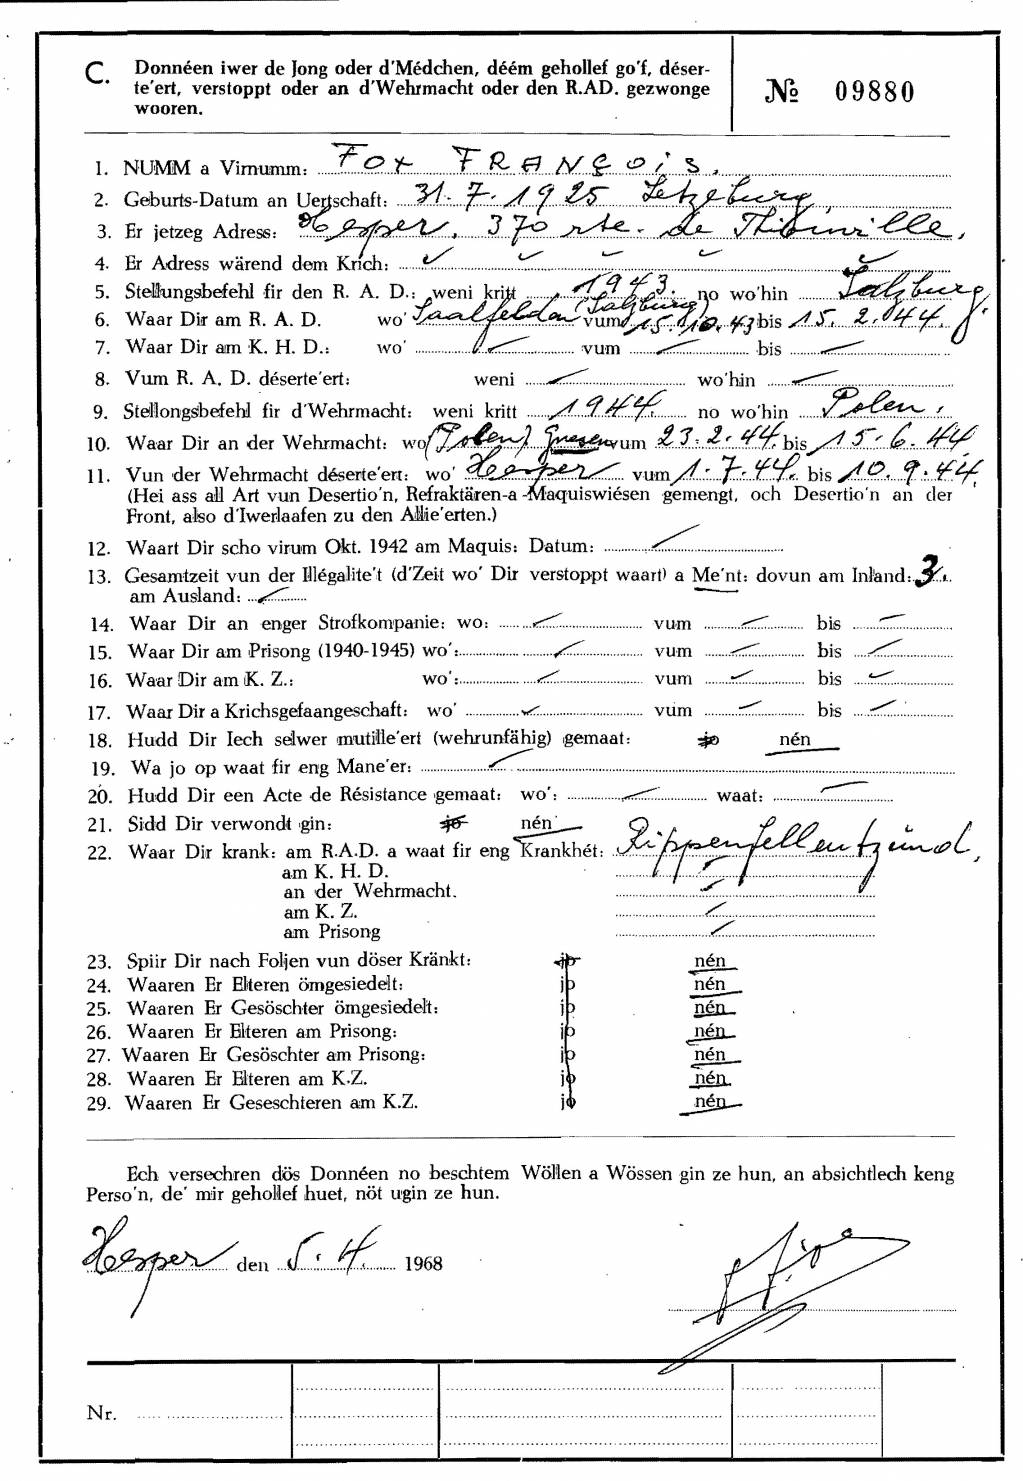 C. Donnéen iwer de Jong oder d'Médchen, déém gehollef go'f, déser-
te'ert, verstoppt oder an d'Wehrmacht oder den R.AD. gezwonge
wooren.
№ 09880
1. NUMM a Virnumm: Fox FRANÇOIS.
2. Geburts-Datum an Uertschaft: 31. 7. 1925 Letzeburg
3. Er jetzeg Adress: Hesper. 370 rte. de Thionville.
4. Er Adress wärend dem Krich:
5. Stellungsbefehl fir den R. A. D.: weni kritt 1943. no wo'hin Salzburg
6. Waar Dir am R. A. D. wo' Saalfelden (Salzburg) vum 15.10.43 bis 15. 2. 44.
7. Waar Dir am K. H. D.: wo' vum bis
8. Vum R. A. D. déserte'ert: weni wo'hin
9. Stellongsbefehl fir d'Wehrmacht: weni kritt 1944. no wo'hin Polen.
10. Waar Dir an der Wehrmacht: wo (Polen) Gnesen vum 23. 2. 44. bis 15. 6. 44.
11. Vun der Wehrmacht déserte'ert: wo' Hesper vum 1. 7. 44. bis 10. 9. 44.
(Hei ass all Art vun Desertio'n, Refraktären-a -Maquiswiésen gemengt, och Desertio'n an der
Front, also d'Iwerlaafen zu den Allie'erten.)
12. Waart Dir scho virum Okt. 1942 am Maquis: Datum:
13. Gesamtzeit vun der Illégalite't (d'Zeit wo' Dir verstoppt waart) a Me'nt: dovun am Inland: 3.
am Ausland:
14. Waar Dir an enger Strofkompanie: wo: vum bis
15. Waar Dir am Prisong (1940-1945) wo': vum bis
16. Waar Dir am K. Z.: wo': vum bis
17. Waar Dir a Krichsgefaangeschaft: wo' vum bis
18. Hudd Dir Iech selwer mutille'ert (wehrunfähig) gemaat: jo nén
19. Wa jo op waat fir eng Mane'er:
20. Hudd Dir een Acte de Résistance gemaat: wo': waat:
21. Sidd Dir verwondt gin: jo nén
22. Waar Dir krank: am R.A.D. a waat fir eng Krankhét: Rippenfellentzünd.
am K. H. D.
an der Wehrmacht.
am K. Z.
am Prisong
23. Spiir Dir nach Foljen vun döser Kränkt: jo nén
24. Waaren Er Elteren ömgesiedelt: jo nén
25. Waaren Er Gesöschter ömgesiedelt: jo nén
26. Waaren Er Elteren am Prisong: jo nén
27. Waaren Er Gesöschter am Prisong: jo nén
28. Waaren Er Elteren am K.Z. jo nén
29. Waaren Er Geseschteren am K.Z. jo nén
Ech versechren dös Donnéen no beschtem Wöllen a Wössen gin ze hun, an absichtlech keng
Perso'n, de' mir gehollef huet, nöt ugin ze hun.
Hesper den 5. 4. 1968
Nr.